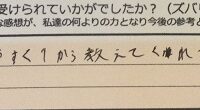 受けられていかがでしたか？（ズバリ
な感想が、私達の何よりの力となり今後の参考と
やすく1から教えてくれ